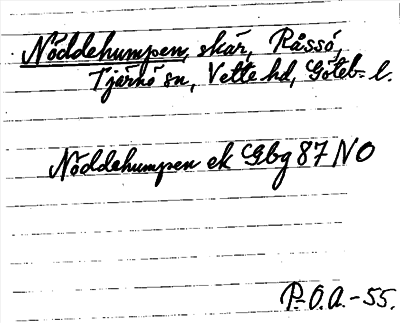 Nöddehumpen, skär, Råssö,
Tjärnö sn, Vette hd, Göteb. l.
Nöddehumpen ek Gbg 87 NO
P.-O.A.-55.